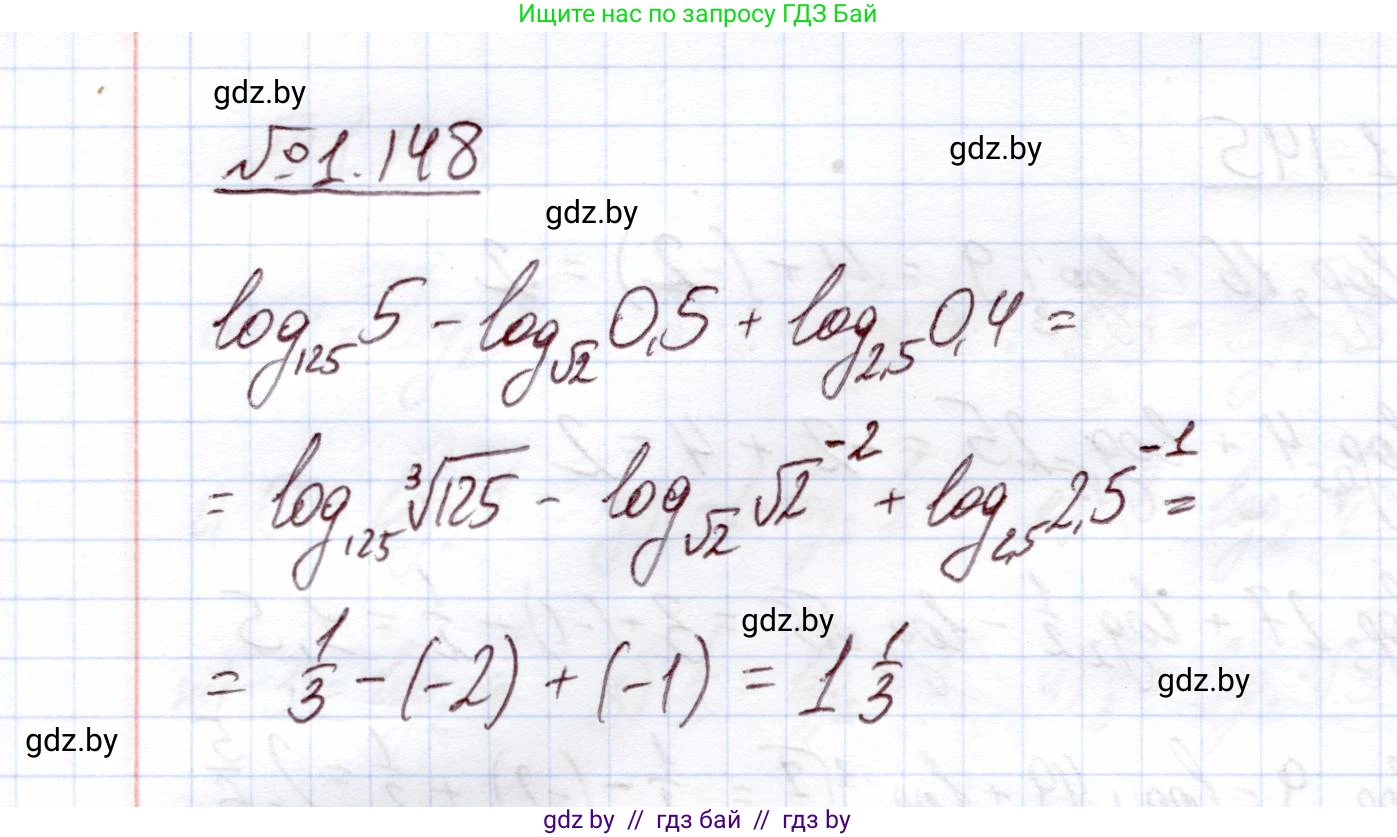 Ищите нас по запросу ГДЗ Бай
gdz.by
№1.148
gdz.by
gdz.by
log₁₂₅ 5 − log_√2 0,5 + log₂,₅ 0,4 =
= log₁₂₅ ∛125 − log_√2 √2⁻² + log₂,₅ 2,5⁻¹ =
gdz.by
= 1/3 − (−2) + (−1) = 1 1/3
gdz.by
gdz.by
gdz by // гдз бай // гдз by